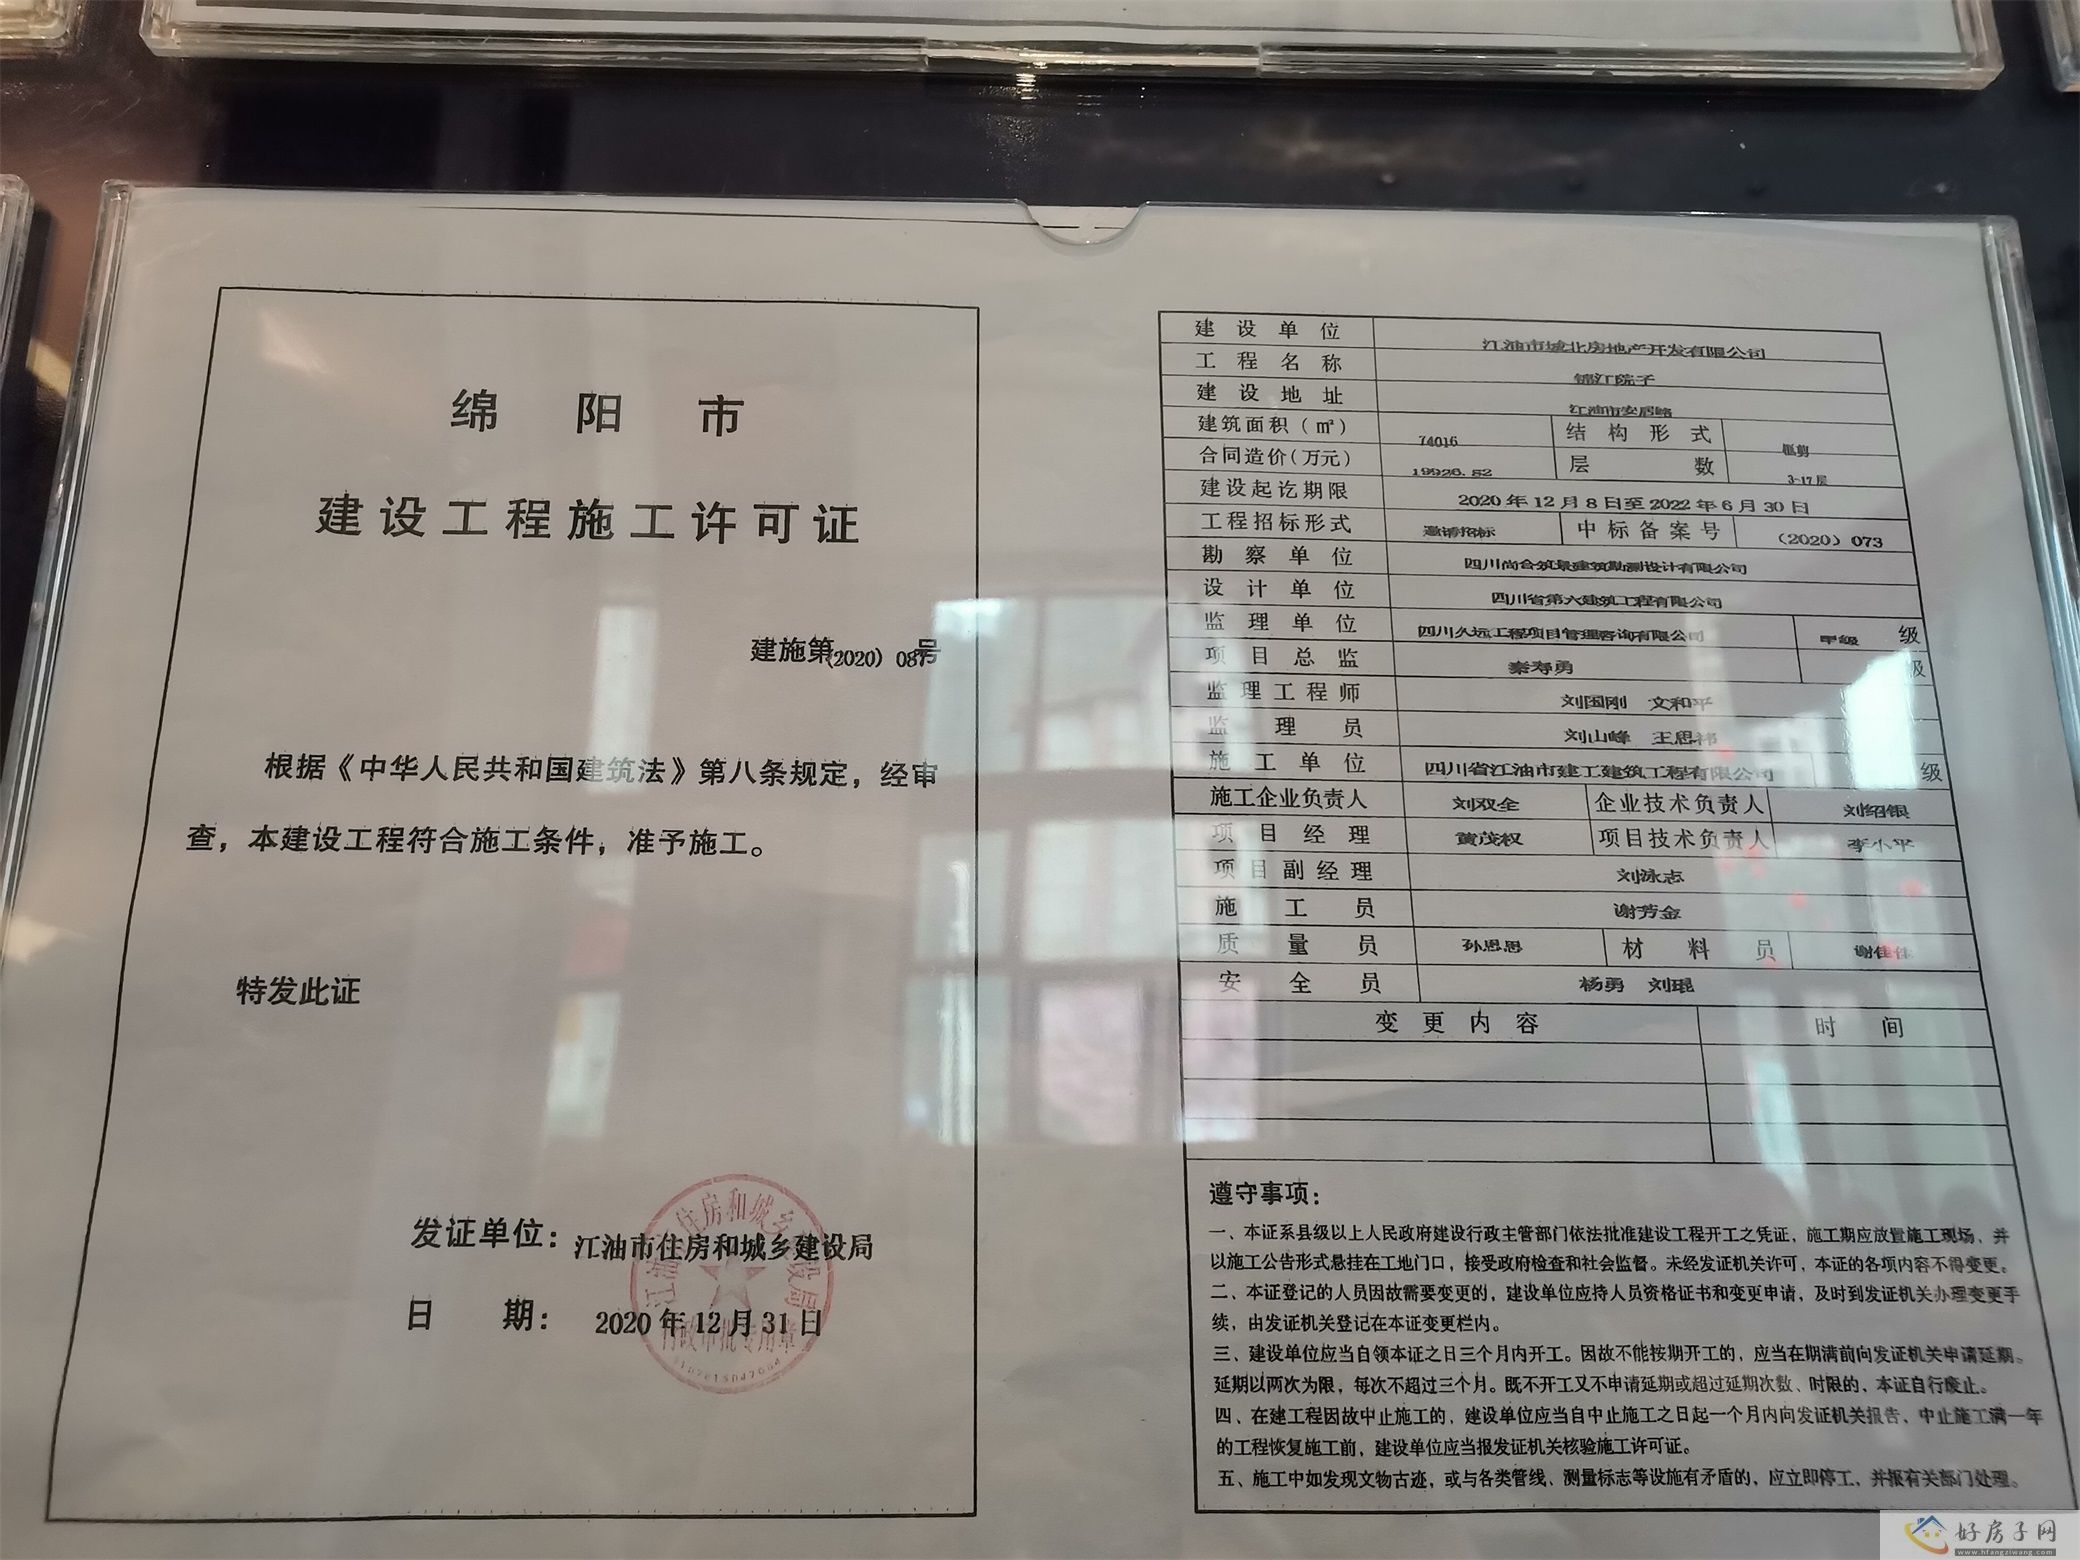 绵 阳 市
建设工程施工许可证
建施第(2020) 087号
根据《中华人民共和国建筑法》第八条规定，经审
查，本建设工程符合施工条件，准予施工。
特发此证
发证单位：江油市住房和城乡建设局
日 期：2020年12月31日
江油市住房和城乡建设局
行政审批专用章
建设单位 江油市城北房地产开发有限公司
工程名称 锦江院子
建设地址 江油市安居路
建筑面积（㎡） 74016 结构形式 框剪
合同造价(万元) 19926.52 层数 3-17层
建设起讫期限 2020年12月8日至2022年6月30日
工程招标形式 邀请招标 中标备案号 (2020) 073
勘察单位 四川尚合筑景建筑勘测设计有限公司
设计单位 四川省第六建筑工程有限公司
监理单位 四川久远工程项目管理咨询有限公司 甲级 级
项目总监 秦寿勇 级
监理工程师 刘国刚 文和平
监理员 刘山峰 王思祎
施工单位 四川省江油市建工建筑工程有限公司 级
施工企业负责人 刘双全 企业技术负责人 刘绍银
项目经理 黄茂权 项目技术负责人 李小平
项目副经理 刘泳志
施工员 谢芳金
质量员 孙思思 材料员 谢佳佳
安全员 杨勇 刘琨
变更内容 时间
遵守事项：
一、本证系县级以上人民政府建设行政主管部门依法批准建设工程开工之凭证，施工期应放置施工现场，并
以施工公告形式悬挂在工地门口，接受政府检查和社会监督。未经发证机关许可，本证的各项内容不得变更。
二、本证登记的人员因故需要变更的，建设单位应持人员资格证书和变更申请，及时到发证机关办理变更手
续，由发证机关登记在本证变更栏内。
三、建设单位应当自领本证之日三个月内开工。因故不能按期开工的，应当在期满前向发证机关申请延期。
延期以两次为限，每次不超过三个月。既不开工又不申请延期或超过延期次数、时限的，本证自行废止。
四、在建工程因故中止施工的，建设单位应当自中止施工之日起一个月内向发证机关报告，中止施工满一年
的工程恢复施工前，建设单位应当报发证机关核验施工许可证。
五、施工中如发现文物古迹，或与各类管线、测量标志等设施有矛盾的，应立即停工，并报有关部门处理。
好房子网
www.hfangziwang.com